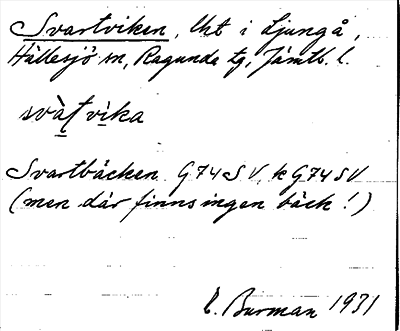 Svartviken, lht i Ljungå,
Hällesjö sn, Ragunda tg, Jämtl. l.
svàṭvi̱ka
Svartbäcken G74SV, k G74SV
(men där finns ingen bäck!)
E. Burman 1931